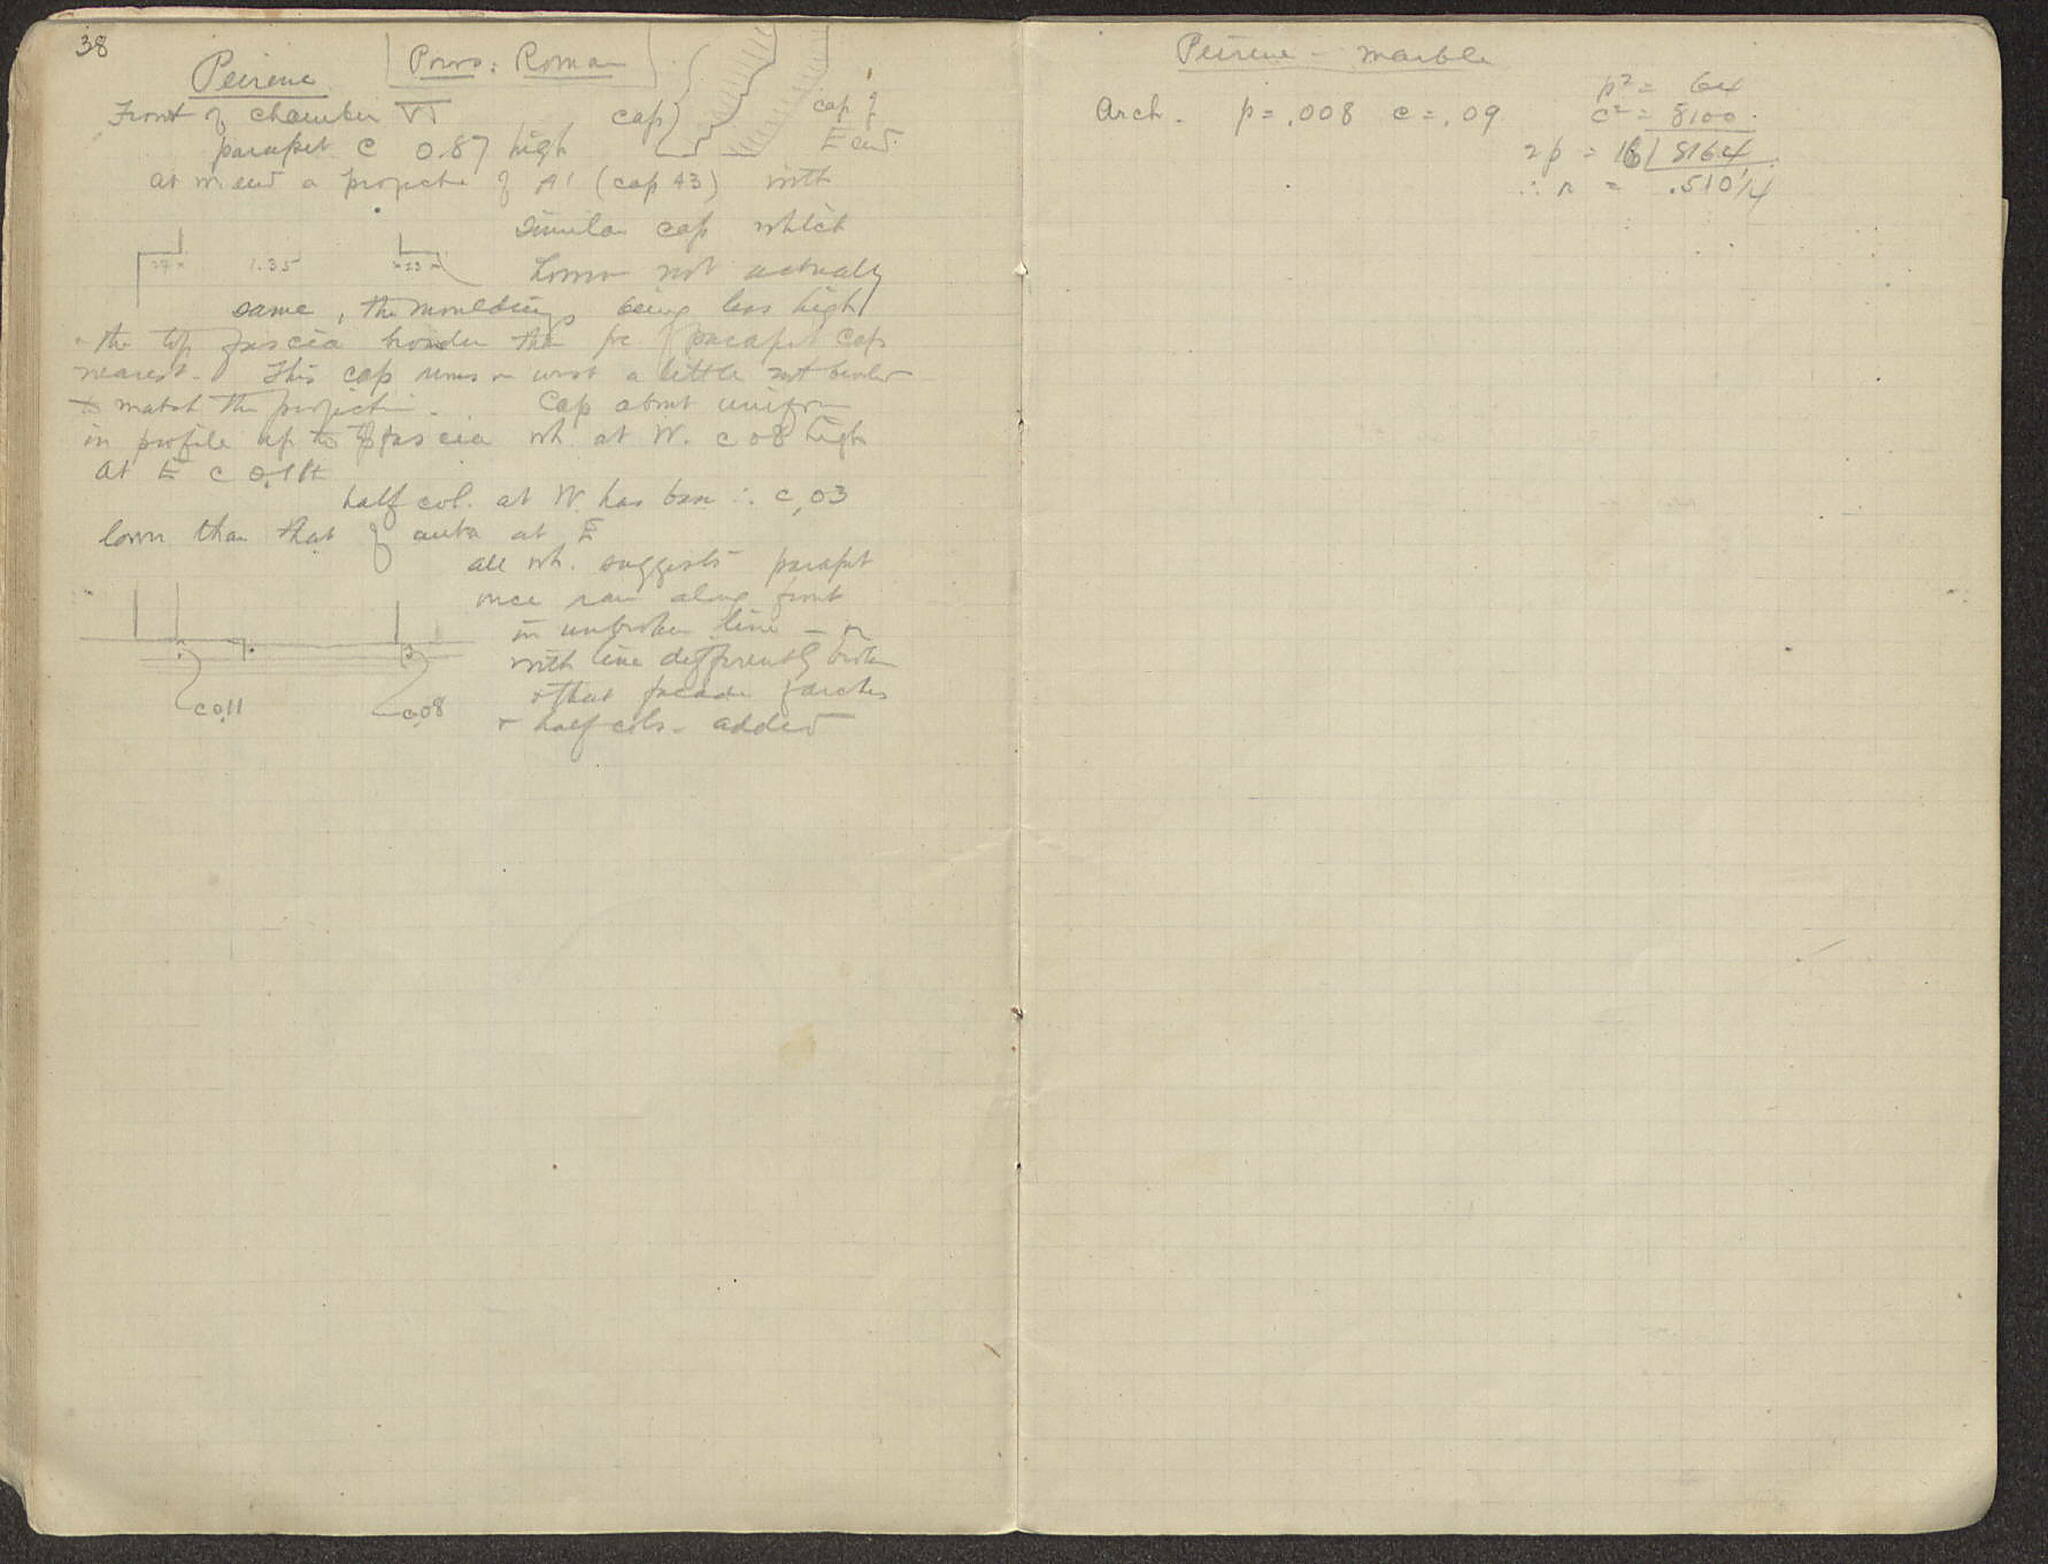 38
Peirene
Poros: Roman
Front of chamber VI
cap
cap of
E end.
parapet c 0.87 high
at W. end a projectn of A1 (cap 43) with
similar cap which
27 1.35 23
however not actually
same, the mouldings being less high
the top fascia broader than parapet cap
nearest. This cap runs a little
to match the projection. Cap about uniform
in profile up to top fascia wh. at W. c 08 high
at E c 0.11
half col. at W. has base ∴ c .03
lower than that of anta at E
all wh. suggests parapet
once ran along front
in unbroken line — or
with line differently broken
& that facade of arches
& half cols. added
c 0.11
c 0.08
Peirene - marble
Arch. p = .008 c = .09
p² = 64
c² = 8100
2p = 16 | 8164
∴ r = .510 1/4